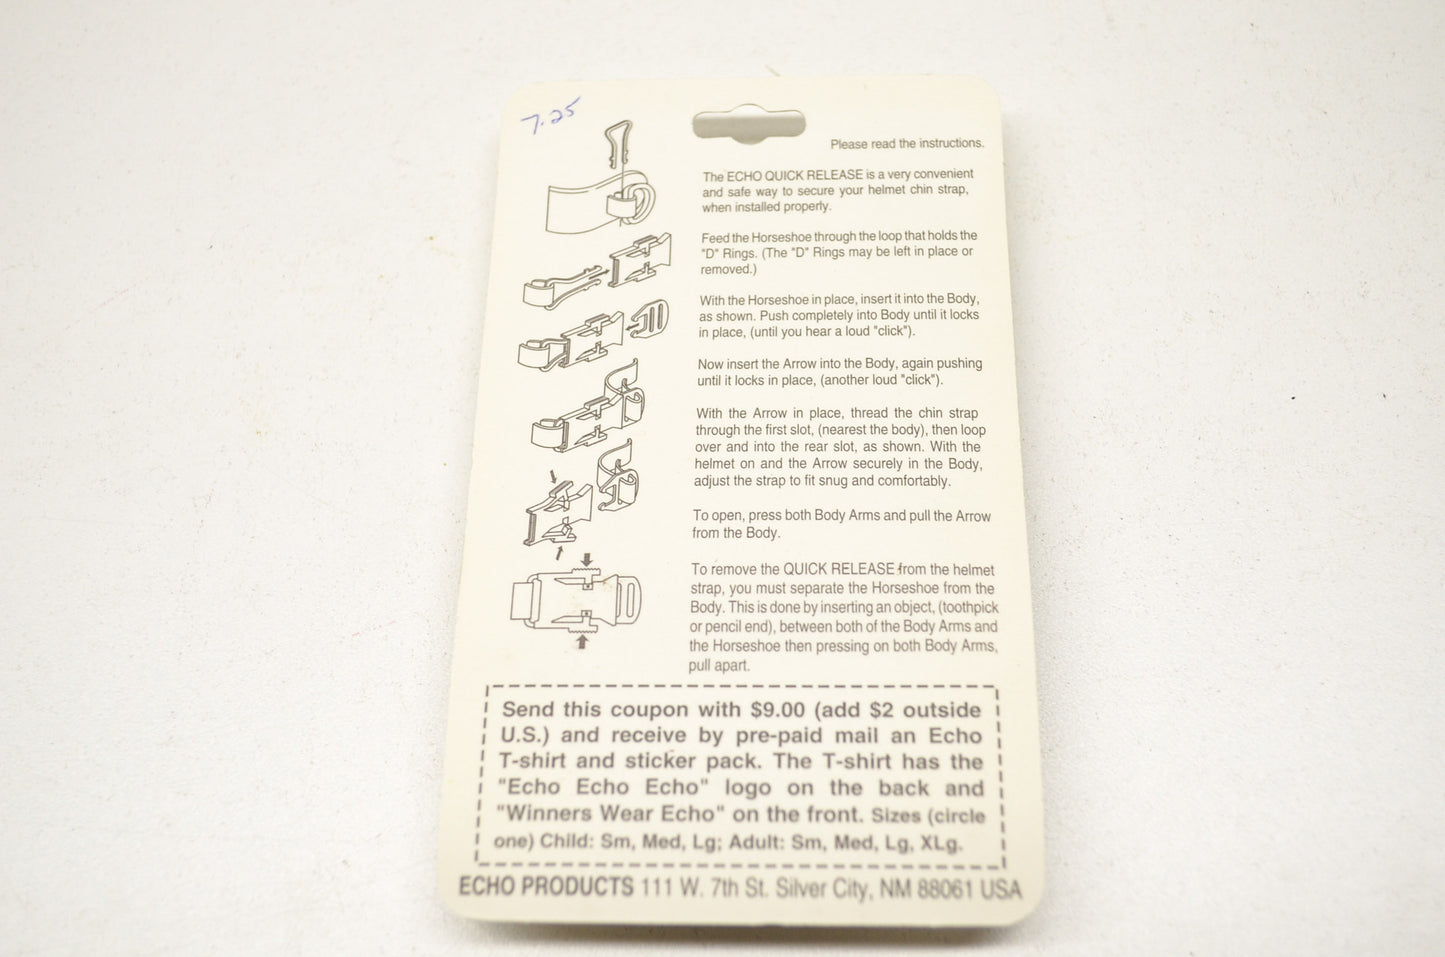 7.25
Please read the instructions.
The ECHO QUICK RELEASE is a very convenient
and safe way to secure your helmet chin strap,
when installed properly.
Feed the Horseshoe through the loop that holds the
"D" Rings. (The "D" Rings may be left in place or
removed.)
With the Horseshoe in place, insert it into the Body,
as shown. Push completely into Body until it locks
in place, (until you hear a loud "click").
Now insert the Arrow into the Body, again pushing
until it locks in place, (another loud "click").
With the Arrow in place, thread the chin strap
through the first slot, (nearest the body), then loop
over and into the rear slot, as shown. With the
helmet on and the Arrow securely in the Body,
adjust the strap to fit snug and comfortably.
To open, press both Body Arms and pull the Arrow
from the Body.
To remove the QUICK RELEASE from the helmet
strap, you must separate the Horseshoe from the
Body. This is done by inserting an object, (toothpick
or pencil end), between both of the Body Arms and
the Horseshoe then pressing on both Body Arms,
pull apart.
Send this coupon with $9.00 (add $2 outside
U.S.) and receive by pre-paid mail an Echo
T-shirt and sticker pack. The T-shirt has the
"Echo Echo Echo" logo on the back and
"Winners Wear Echo" on the front. Sizes (circle
one) Child: Sm, Med, Lg; Adult: Sm, Med, Lg, XLg.
ECHO PRODUCTS 111 W. 7th St. Silver City, NM 88061 USA